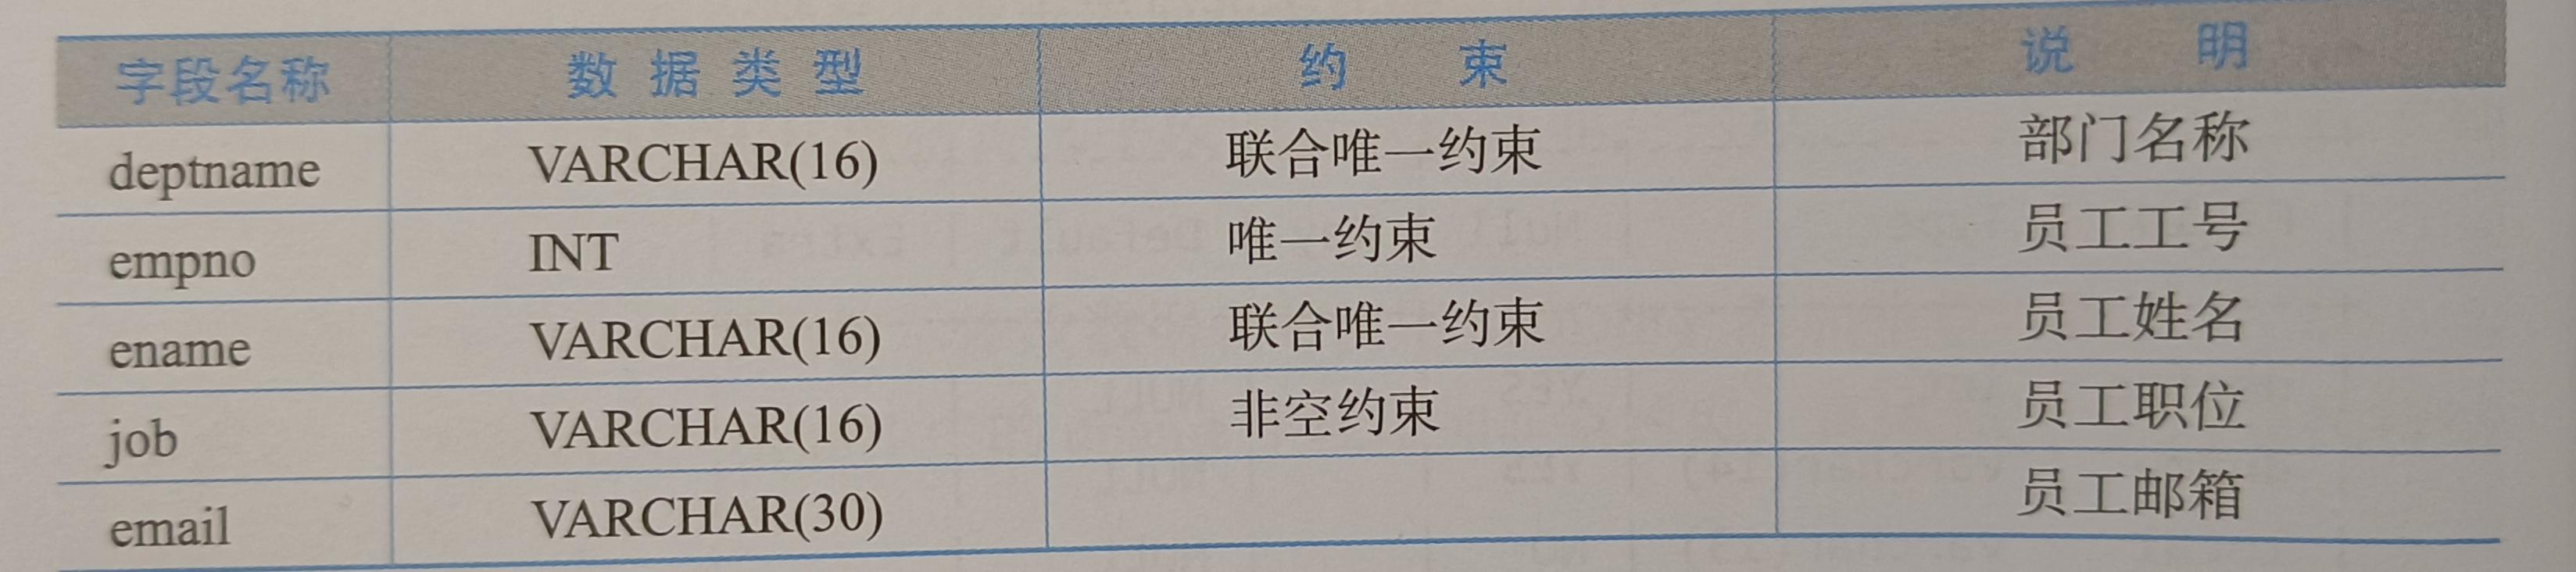 字段名称 数据类型 约束 说明
deptname VARCHAR(16) 联合唯一约束 部门名称
empno INT 唯一约束 员工工号
ename VARCHAR(16) 联合唯一约束 员工姓名
job VARCHAR(16) 非空约束 员工职位
email VARCHAR(30) 员工邮箱